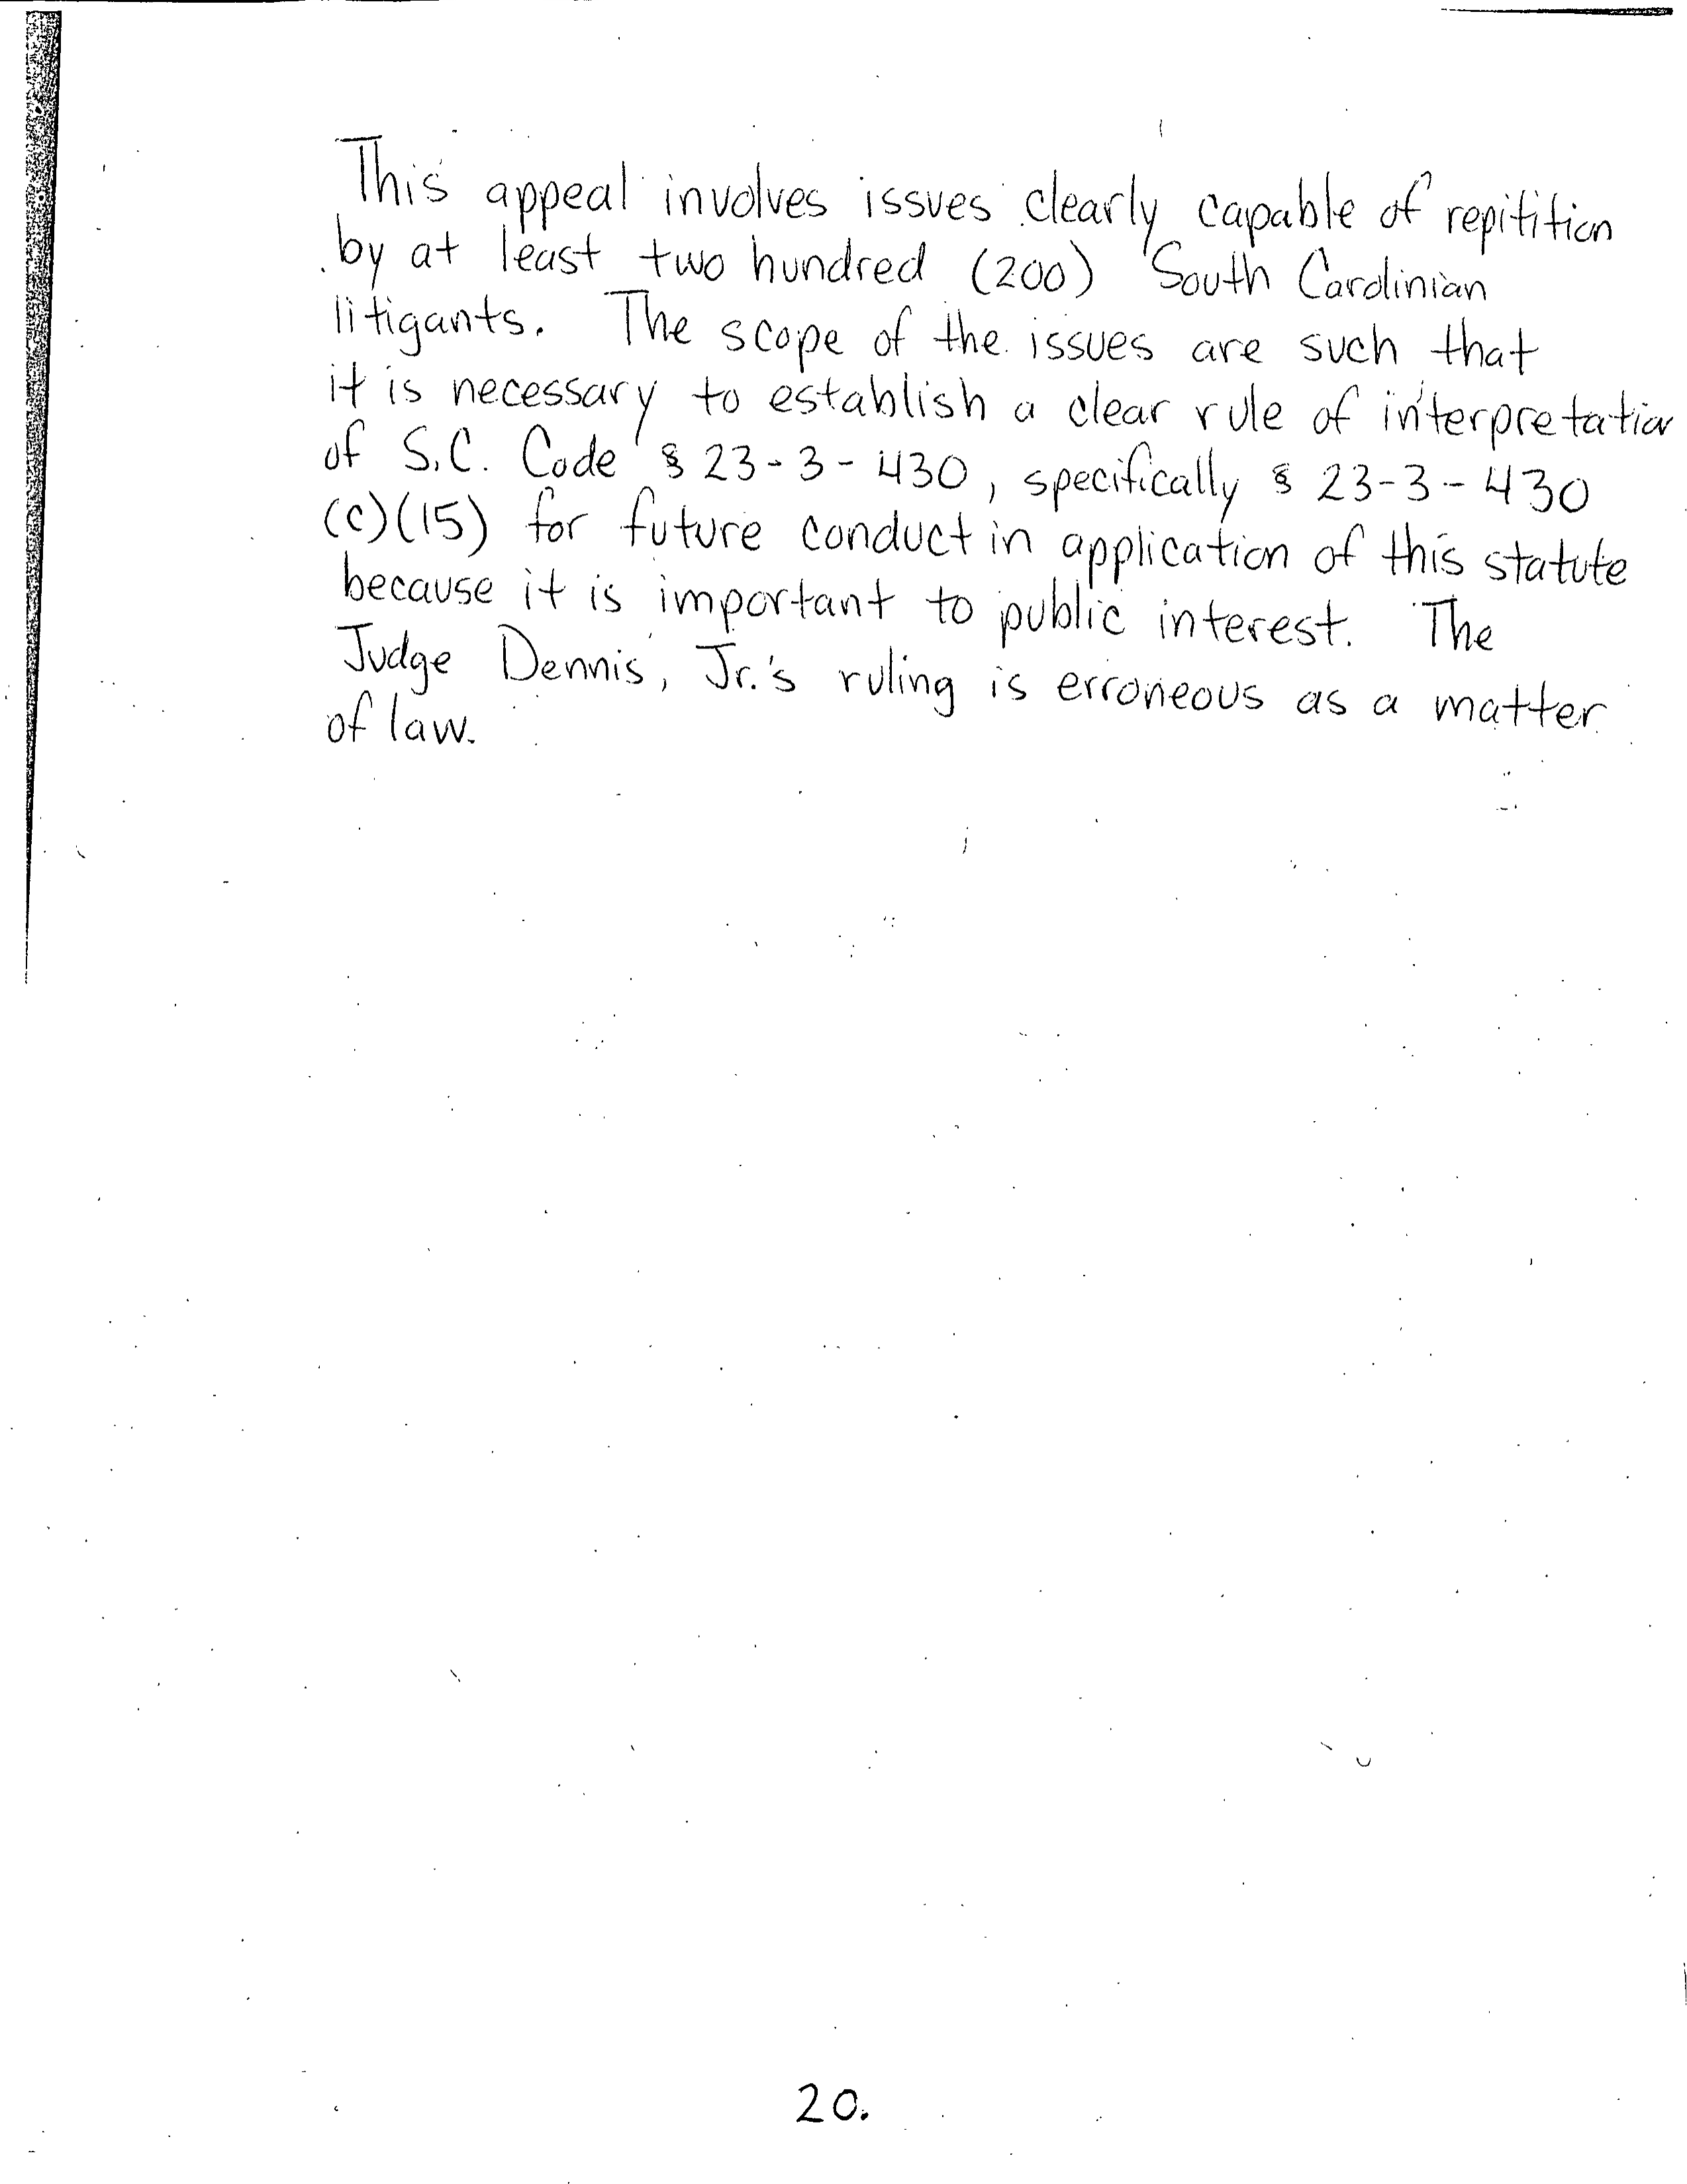 This appeal involves issues clearly capable of repitition
by at least two hundred (200) South Carolinian
litigants. The scope of the issues are such that
it is necessary to establish a clear rule of interpretation
of S.C. Code § 23-3-430, specifically § 23-3-430
(c)(15) for future conduct in application of this statute
because it is important to public interest. The
Judge Dennis, Jr.'s ruling is erroneous as a matter
of law.
20.